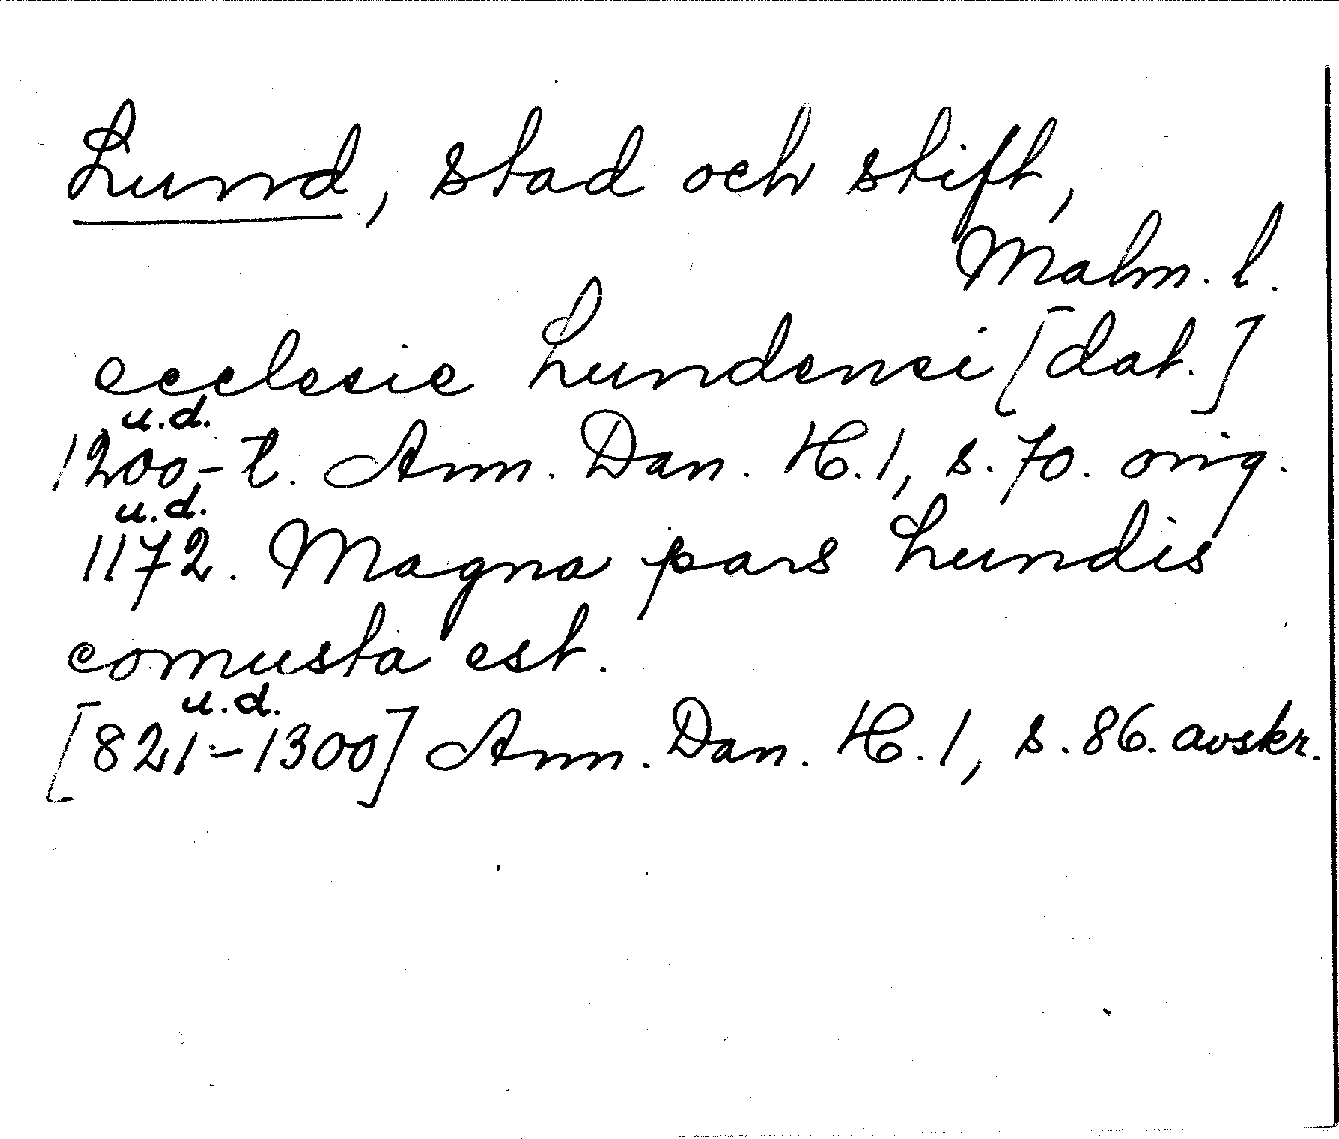 Lund, stad och stift,
Malm. l.
ecclesie Lundensi [dat.]
u.d.
1200-t. Ann. Dan. H.1, s. 70. orig.
u.d.
1172. Magna pars Lundis
comusta est.
u.d.
[821-1300] Ann. Dan. H.1, s. 86. avskr.